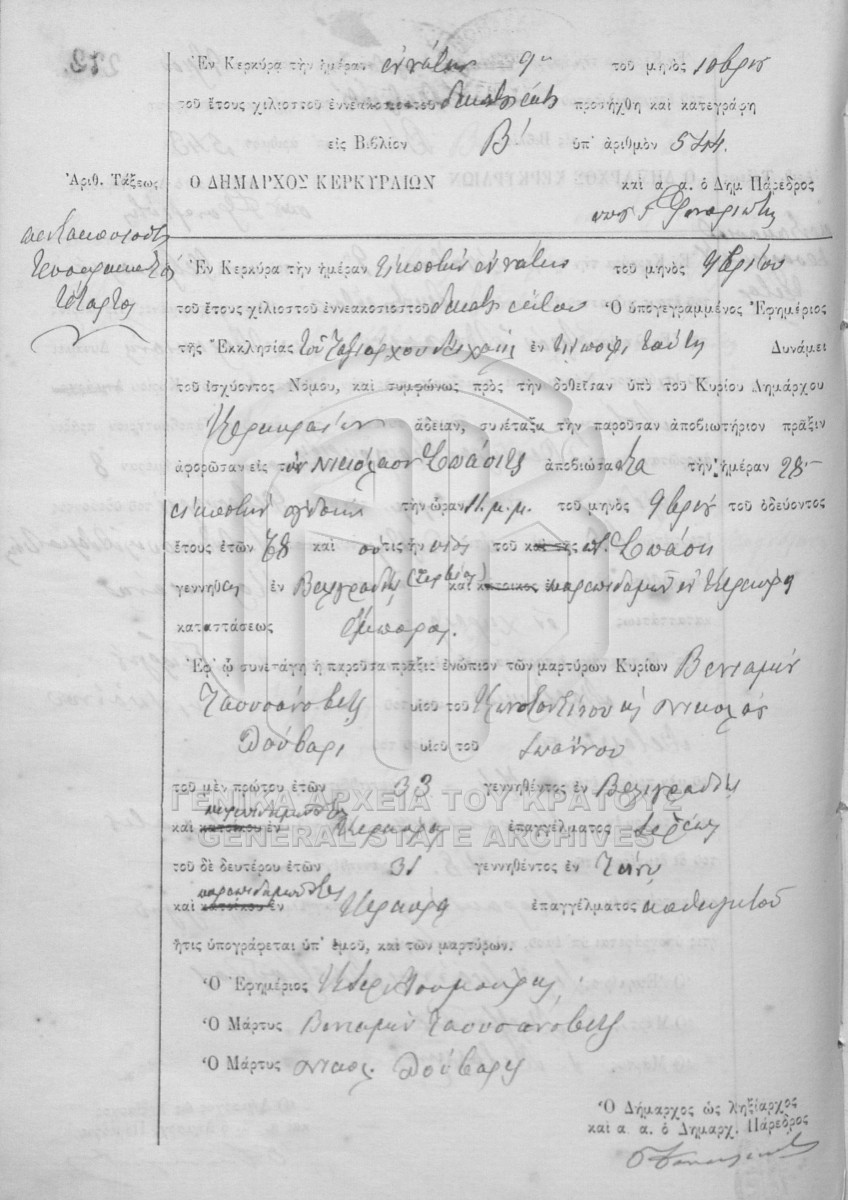 Ἐν Κερκύρᾳ τὴν ἡμέραν ἐννάτην 9ην τοῦ μηνὸς 10βρίου
τοῦ ἔτους χιλιοστοῦ ἐννεακοσιοστοῦ προσήχθη καὶ κατεγράφη
εἰς Βιβλίον Β' ὑπ' ἀριθμὸν 544.
Ἀριθ. Τάξεως
Ὁ ΔΗΜΑΡΧΟΣ ΚΕΡΚΥΡΑΙΩΝ καὶ α. α. ὁ Δημ Πάρεδρος
πεντακοσιοστὸς
τεσσαρακοστὸς
τέταρτος
Ἐν Κερκύρᾳ τὴν ἡμέραν εἰκοστὴν ἐννάτην τοῦ μηνὸς 9βρίου
τοῦ ἔτους χιλιοστοῦ ἐννεακοσιοστοῦ Ὁ ὑπογεγραμμένος Ἐφημέριος
τῆς Ἐκκλησίας τοῦ Ταξιάρχου Μιχαὴλ ἐν τῇ πόλει ταύτῃ Δυνάμει
τοῦ ἰσχύοντος Νόμου, καὶ συμφώνως πρὸς τὴν δοθεῖσαν ὑπὸ τοῦ Κυρίου Δημάρχου
Κερκυραίων ἄδειαν, συνέταξα τὴν παροῦσαν ἀποβιωτήριον πρᾶξιν
ἀφορῶσαν εἰς τὸν Νικόλαον Σπάσιτς ἀποβιώσαντα τὴν ἡμέραν 28
εἰκοστὴν ὀγδόην τὴν ὥραν 11 μ.μ. τοῦ μηνὸς 9βρίου τοῦ ὁδεύοντος
ἔτους ἐτῶν 78 καὶ ὅστις ἦν υἱὸς τοῦ καὶ τῆς Σπάση
γεννηθεὶς ἐν Βελιγραδίῳ (Σερβίας) καὶ κάτοικος ἐν παρεπιδημῶν ἐν Κερκύρᾳ
καταστάσεως ἔμπορος.
Ἐφ' ᾧ συνετάγη ἡ παροῦσα πρᾶξις ἐνώπιον τῶν μαρτύρων Κυρίων Βενιαμὴν
Ταουσάνοβιτς υἱοῦ τοῦ Κωνσταντίνου κ Νικολάου
Δούβαρι υἱοῦ τοῦ Ἰωάννου
τοῦ μὲν πρώτου ἐτῶν 33 γεννηθέντος ἐν Βελιγραδίῳ
παρεπιδημοῦντος
καὶ κατοίκου ἐν Κερκύρᾳ ἐπαγγέλματος ἱερέως
τοῦ δὲ δευτέρου ἐτῶν 31 γεννηθέντος ἐν Τήνῳ
παρεπιδημοῦντος
καὶ κατοίκου ἐν Κερκύρᾳ ἐπαγγέλματος καθηγητοῦ
ἥτις ὑπογράφεται ὑπ' ἐμοῦ, καὶ τῶν μαρτύρων.
Ὁ Ἐφημέριος
Ὁ Μάρτυς Βενιαμὴν Ταουσάνοβιτς
Ὁ Μάρτυς Νικολ. Δούβαρης
Ὁ Δήμαρχος ὡς ληξίαρχος
καὶ α. α. ὁ Δημαρχ. Πάρεδρος
ΓΕΝΙΚΑ ΑΡΧΕΙΑ ΤΟΥ ΚΡΑΤΟΥΣ
GENERAL STATE ARCHIVES